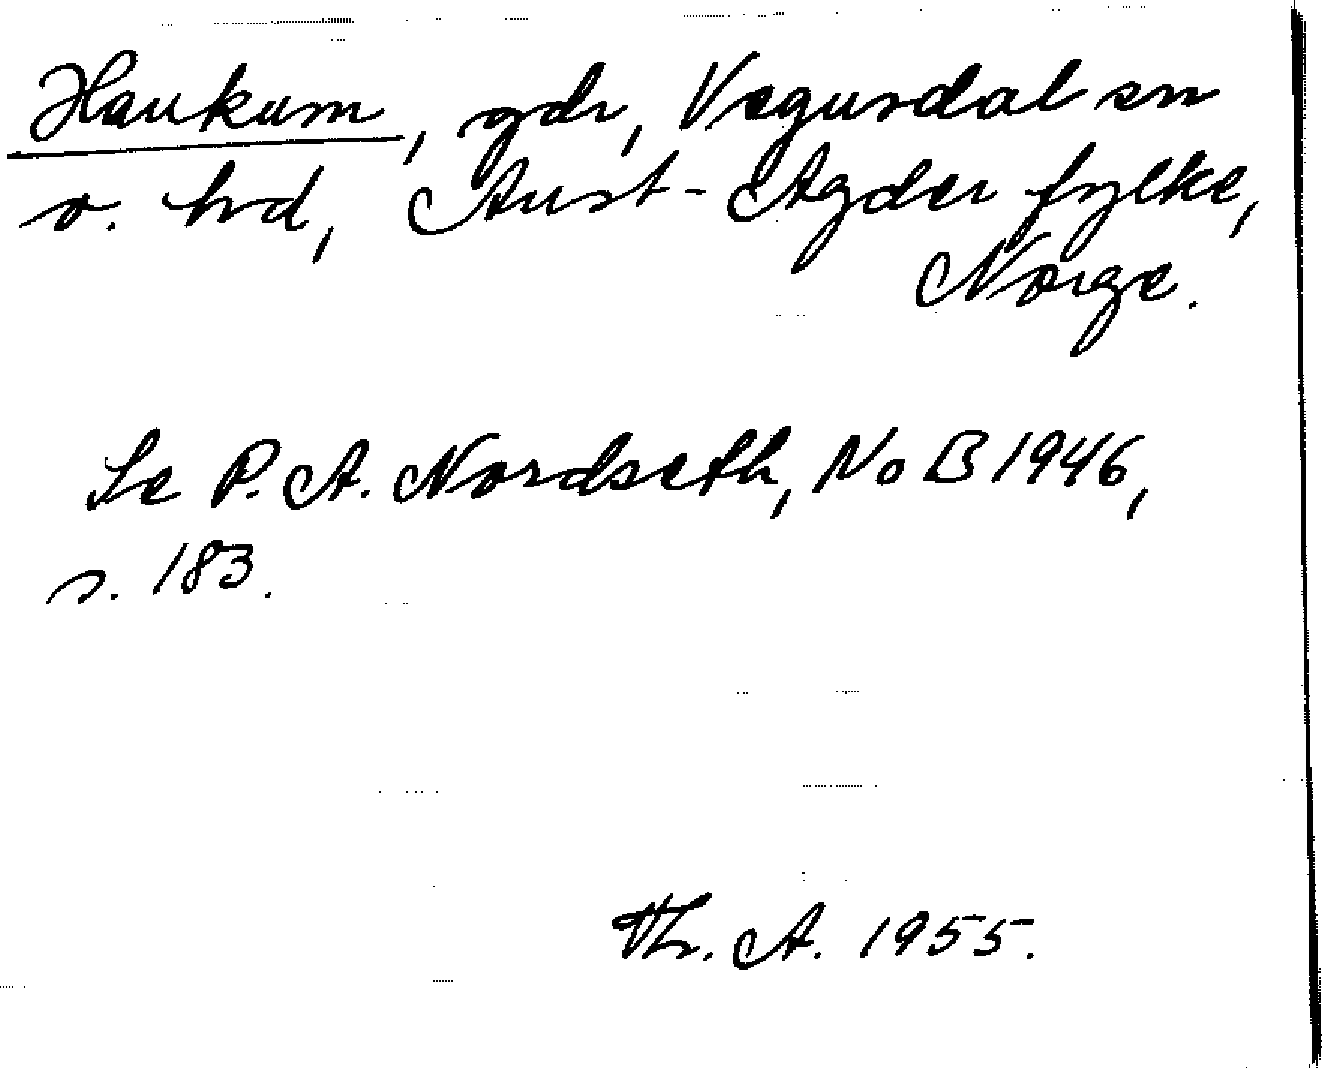 Haukum, gdr, Vegusdal sn
o. hd, Aust-Agder fylke,
Norge.
Se P. A. Nordseth, NoB 1946,
s. 183.
Th. A. 1955.